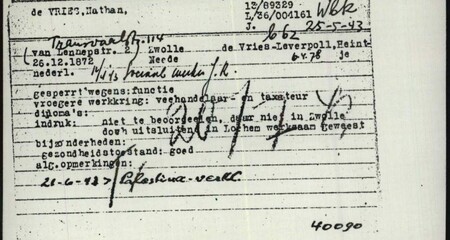 de VRIES, Nathan,
13/89329
L/36/004161 Wbk
J. 25-5-43
Transvaalstr. 114 b 62
(van Lennepstr. 2) Zwolle de Vries-Leverpoll, Heint-
26.12.1872 Neede 6.4.78 je
nederl.
gesperrt wegens: functie
vroegere werkkring: veehandelaar- en taxateur
diploma's:
indruk: niet te beoordeelen, daar niet in Zwolle
doch uitsluitend in Lochem werkzaam geweest
bijzonderheden:
gezondheidstoestand: goed
alg. opmerkingen:
21-6-43 > Palestina-verkl.
40090